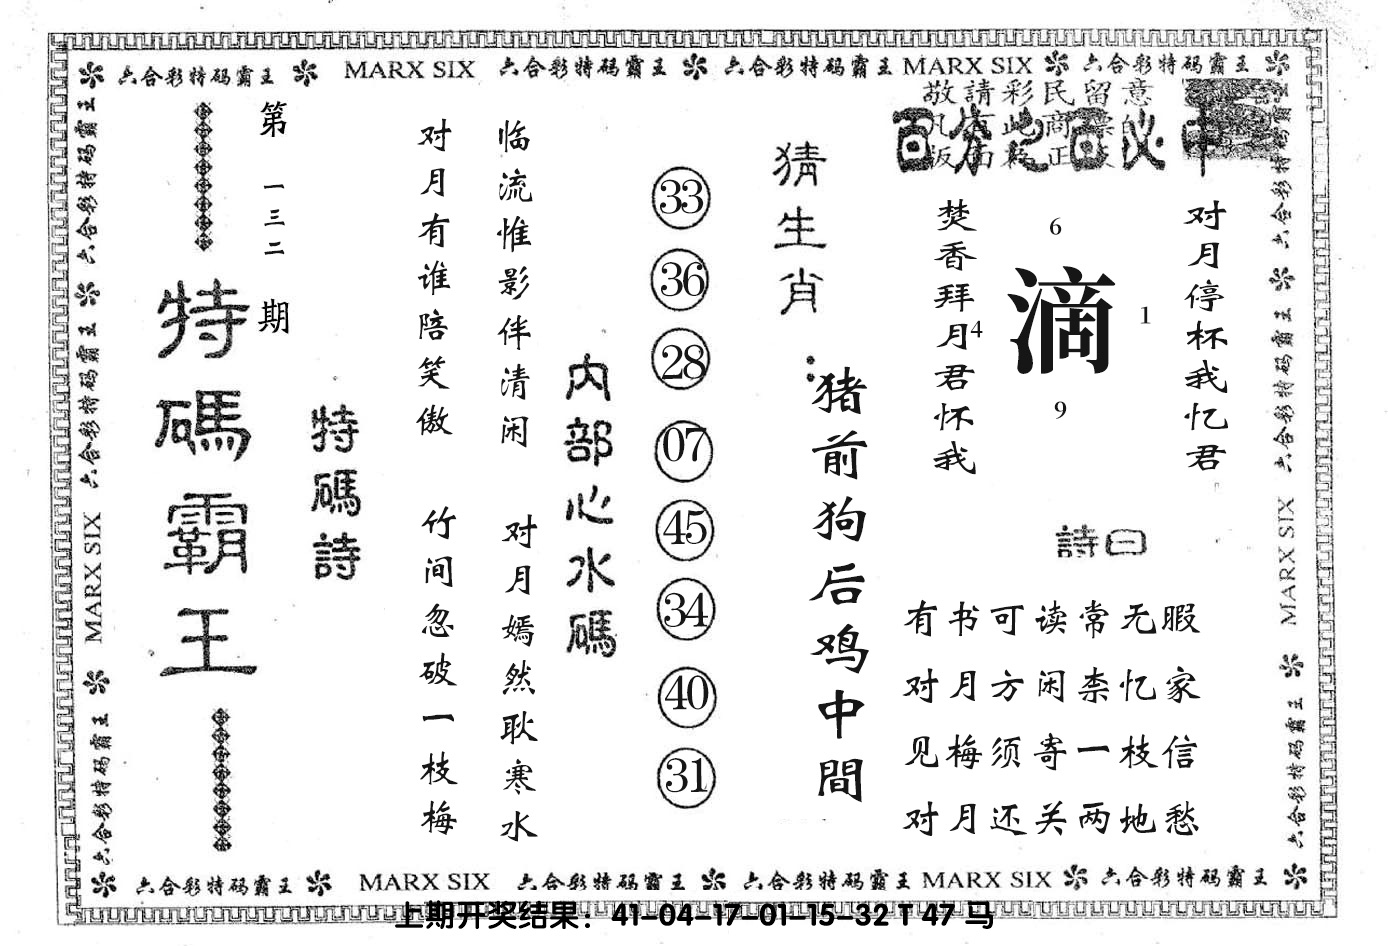 六合彩特码霸王 MARX SIX 六合彩特码霸王 六合彩特码霸王 MARX SIX 六合彩特码霸王
敬請彩民留意
百分之百必中
对月停杯我忆君
焚香拜月君怀我
6
4
滴
1
9
詩曰
有书可读常无暇
对月方闲柰忆家
见梅须寄一枝信
对月还关两地愁
猜生肖：
猪前狗后鸡中間
33
36
28
07
45
34
40
31
内部心水碼
临流惟影伴清闲
对月嫣然耿寒水
对月有谁陪笑傲
竹间忽破一枝梅
特碼詩
第一三二期
特碼霸王
六合彩特码霸王 六合彩特码霸王 MARX SIX 六合彩特码霸王
六合彩特码霸王 六合彩特码霸王 MARX SIX 六合彩特码霸王
六合彩特码霸王 MARX SIX 六合彩特码霸王 六合彩特码霸王 MARX SIX 六合彩特码霸王
上期开奖结果：41-04-17-01-15-32 T 47 马